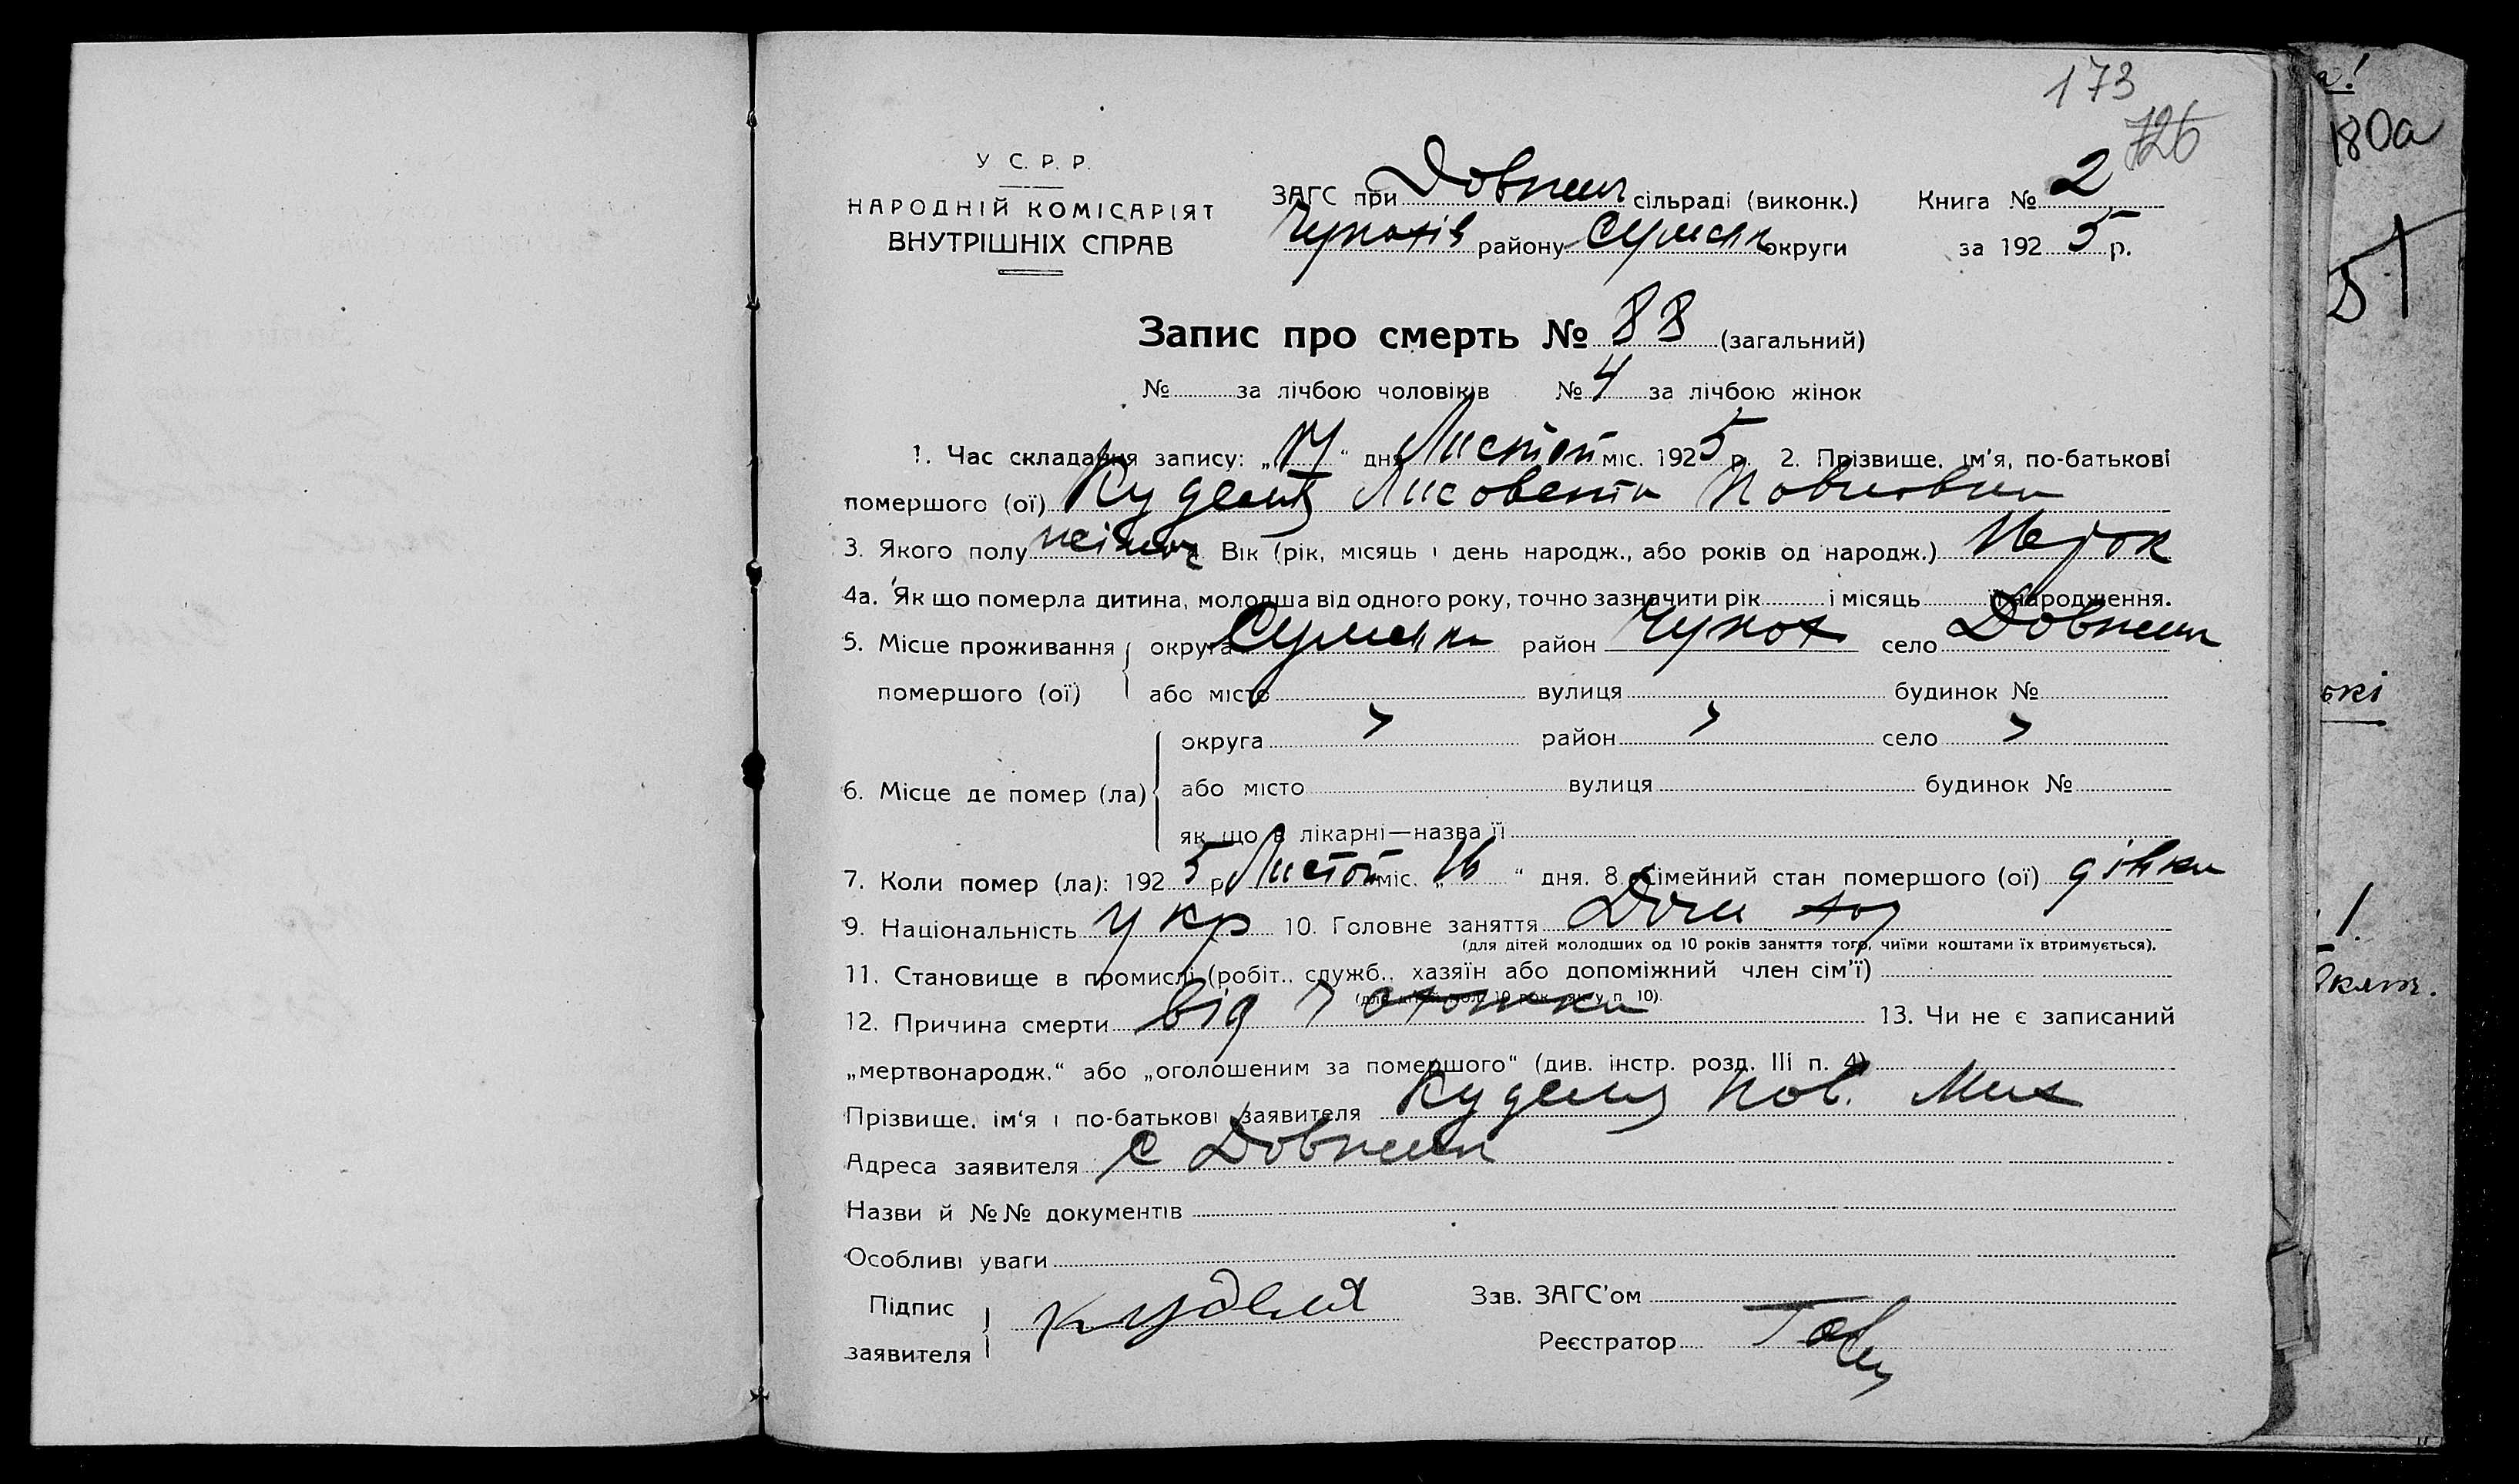 173
726
У С. Р. Р.
НАРОДНІЙ КОМІСАРІЯТ
ВНУТРІШНІХ СПРАВ
ЗАГС при Довжик сільраді (виконк.) Книга № 2
району Сумськ округи за 1925 р.
Запис про смерть № 88 (загальний)
№ за лічбою чоловіків № 4 за лічбою жінок
1. Час складання запису: „17“ дня Листоп міс. 1925 р. 2. Прізвище, ім'я, по-батькові
помершого (ої) Куделя Лисовента Повловна
3. Якого полу Вік (рік, місяць і день народж., або років од народж.)
4а. Як що померла дитина, молодша від одного року, точно зазначити рік і місяць її народження.
5. Місце проживання округа Сумськ район село Довжик
помершого (ої) або місто вулиця будинок №
округа район село
6. Місце де помер (ла) або місто вулиця будинок №
як що в лікарні—назва її
7. Коли помер (ла): 1925 р. Листоп міс. „16“ дня. 8. Сімейний стан помершого (ої) дівка
9. Національність укр 10. Головне заняття Дом
(для дітей молодших од 10 років заняття того, чиїми коштами їх втримується).
11. Становище в промислі (робіт., служб., хазяїн або допоміжний член сім'ї)
(для дітей мол. 10 рок. як у п. 10).
12. Причина смерти від 13. Чи не є записаний
„мертвонародж.“ або „оголошеним за помершого“ (див. інстр. розд. III п. 4)
Прізвище, ім'я і по-батькові заявителя Куделя Пов. Мих
Адреса заявителя с Довжик
Назви й №№ документів
Особливі уваги
Підпис
заявителя Куделя
Зав. ЗАГС'ом
Реєстратор
180а
51
ькі
1.